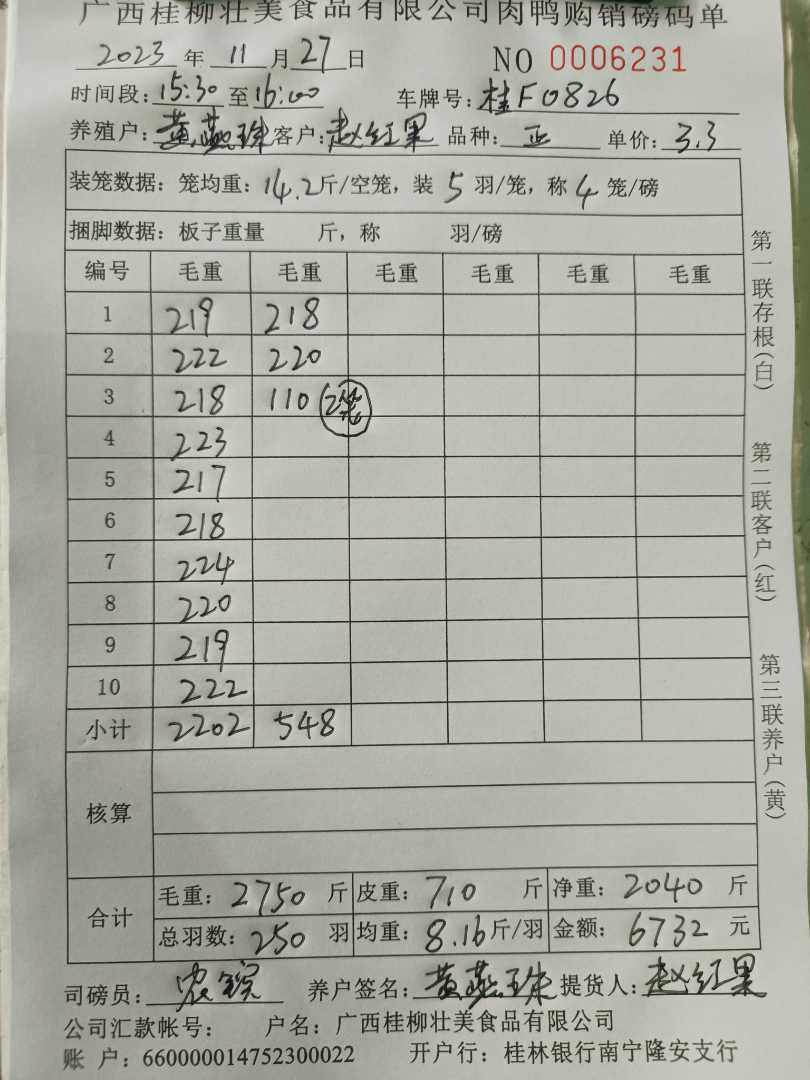 广西桂柳壮美食品有限公司肉鸭购销磅码单
2023 年 11 月 27 日 NO 0006231
时间段: 15:30 至 16:00 车牌号: 桂F0826
养殖户: 黄燕珠 客户: 赵红果 品种: 正 单价: 3.3
装笼数据: 笼均重: 14.2 斤/空笼, 装 5 羽/笼, 称 4 笼/磅
捆脚数据: 板子重量 斤, 称 羽/磅
编号 毛重 毛重 毛重 毛重 毛重 毛重
1 219 218
2 222 220
3 218 110 2笼
4 223
5 217
6 218
7 224
8 220
9 219
10 222
小计 2202 548
核算
合计 毛重: 2750 斤 皮重: 710 斤 净重: 2040 斤
总羽数: 250 羽 均重: 8.16 斤/羽 金额: 6732 元
司磅员: 农 养户签名: 黄燕珠 提货人: 赵红果
公司汇款帐号: 户名: 广西桂柳壮美食品有限公司
账 户: 660000014752300022 开户行: 桂林银行南宁隆安支行
第一联存根(白) 第二联客户(红) 第三联养户(黄)